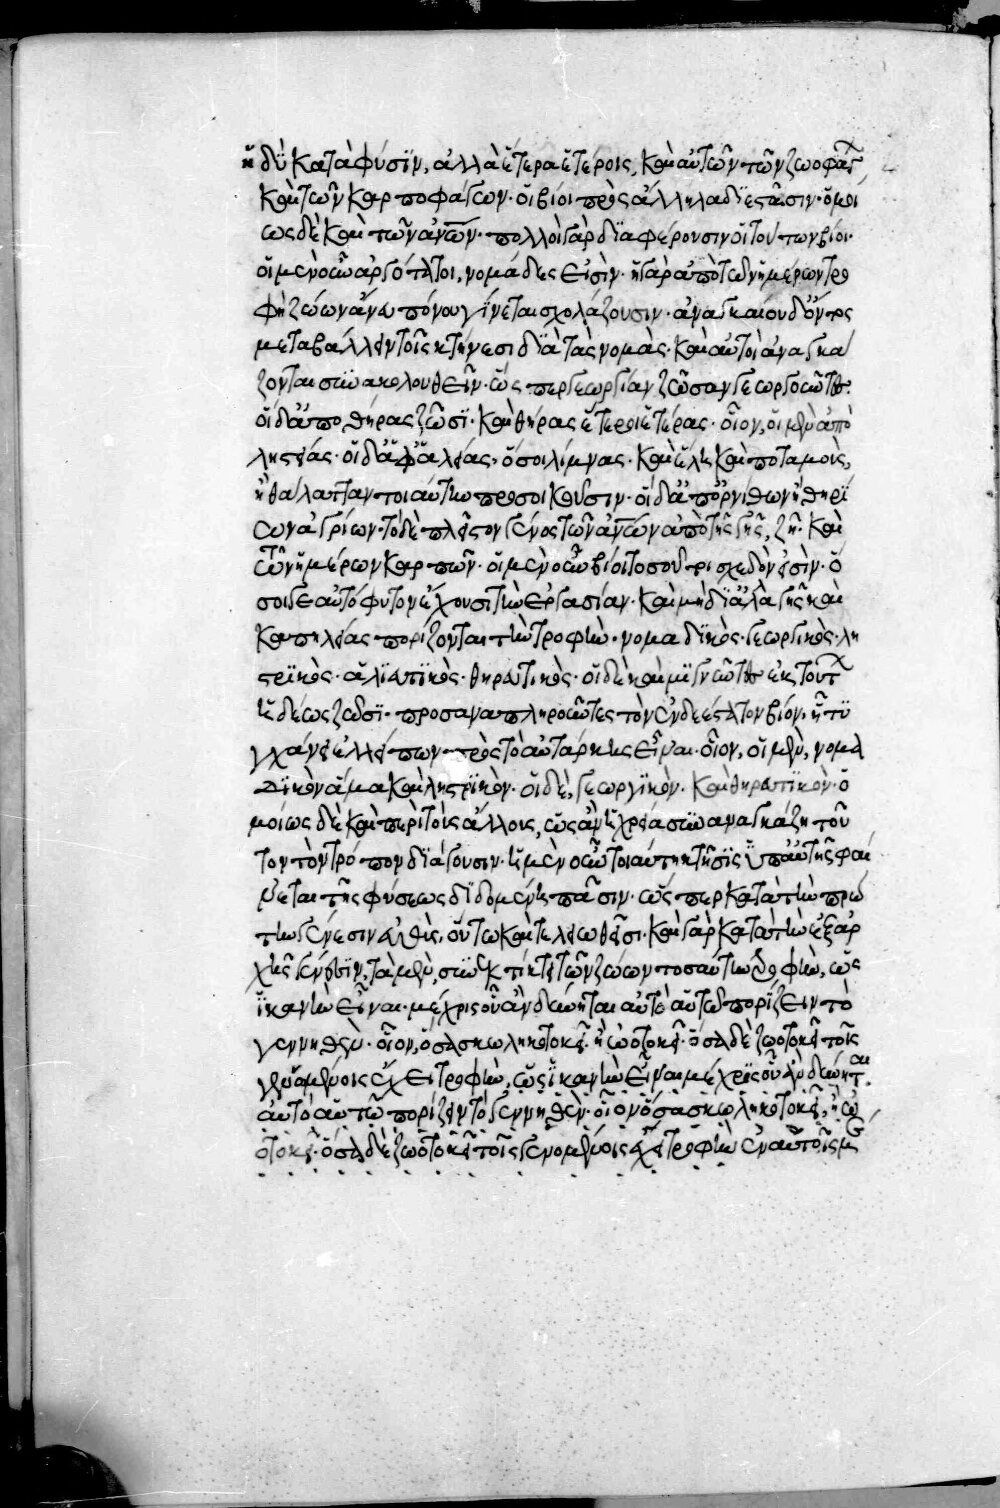 ἡδὺ κατὰ φύσϊν, ἀλλὰ ἕτερα ἑτέροις, καὶ αὐτῶν τῶν ζωοφάγ
καὶ τῶν καρποφάγων· οἱ βίοι πρὸς ἄλληλα διεστᾶσιν· ὁμοί
ως δὲ καὶ τῶν ἀνῶν· πολλοὶ γὰρ διαφέρουσιν οἱ τούτων βίοι·
οἱ μὲν οὖν ἀργότατοι, νομάδες εἰσὶν· ἡ γὰρ ἀπὸ τῶν ἡμέρων τρο
φὴ ζώων ἄνευ πόνου γίνεται σχολάζουσιν· ἀναγκαίου δ' ὄντος
μεταβάλλειν τοῖς κτήνεσι διὰ τὰς νομὰς· καὶ αὐτοὶ ἀναγκά
ζονται συνακολουθεῖν· ὥσπερ γεωργίαν ζῶσαν γεωργοῦντες·
οἱ δ' ἀπὸ θήρας ζῶσι· καὶ θήρας ἕτεροι ἑτέρας· οἷον, οἱ μὲν ἀπὸ
ληστείας· οἱ δ' ἀφ' ἁλείας, ὅσοι λίμνας· καὶ ἕλη καὶ ποταμοὺς,
ἢ θάλατταν τοιαύτην προσοικοῦσιν· οἱ δ' ἀπ' ὀρνίθων ἢ θηρί
ων ἀγρίων· τὸ δὲ πλεῖστον γένος τῶν ἀνῶν ἀπὸ τῆς γῆς, ζῇ· καὶ
τῶν ἡμέρων καρπῶν· οἱ μὲν οὖν βίοι τοσοῦτοι σχεδὸν εἰσὶν· ὅ
σοι γε αὐτόφυτον ἔχουσι τὴν ἐργασίαν· καὶ μὴ δι' ἀλλαγῆς καὶ
καπηλείας πορίζονται τὴν τροφὴν· νομαδϊκὸς· γεωργικὸς· λη
στρϊκὸς· ἁλϊευτϊκὸς· θηρευτικὸς· οἱ δὲ καὶ μϊγνύντες ἐκ τούτ
ἡδέως ζῶσϊ· προσαναπληροῦντες τὸν ἐνδεέστατον βίον, ᾗ τυ
γχάνει ἐλλείπων πρὸς τὸ αὐτάρκης εἶναι· οἷον, οἱ μὲν, νομα
δϊκὸν ἅμα καὶ ληστρϊκὸν· οἱ δὲ, γεωργϊκὸν· καὶ θηρευτϊκὸν· ὁ
μοίως δὲ καὶ περὶ τοὺς ἄλλους, ὡς ἂν ἡ χρεία συναναγκάζη τοῦ
τον τὸν τρόπον διάγουσιν· ἡ μὲν οὖν τοιαύτη κτῆσϊς ὑπ' αὐτῆς φαί
νεται τῆς φύσεως διδομένη πᾶσιν· ὥσπερ κατὰ τὴν πρώ
την γένεσιν εὐθὺς, οὕτω καὶ τελειωθεῖσι· καὶ γὰρ κατὰ τὴν ἐξ ἀρ
χῆς γένεσϊν, τὰ μὲν, συνεκτίκτει τῶν ζώων τοσαύτην τροφὴν, ὡς
ἱκανὴν εἶναι· μέχρις οὗ ἂν δύνηται αὐτὸ αὑτῶ πορίζειν τὸ
γεννηθὲν· οἷον, ὅσα σκωληκοτοκεῖ· ἢ ὠοτοκεῖ· ὅσα δὲ ζωοτοκεῖ τοῖς
γενομένοις ἔχει τροφὴν, ὡς ἱκανὴν εἶναι μέχρϊς οὗ ἂν δύνηται
αὐτὸ αὑτῶ πορίζειν τὸ γεννηθὲν· οἷον ὅσα σκωληκοτοκεῖ, ἢ ὠ
οτοκεῖ· ὅσα δὲ ζωοτοκεῖ τοῖς γενομένοις ἔχει τροφὴν ἐν αὑτοῖς μ